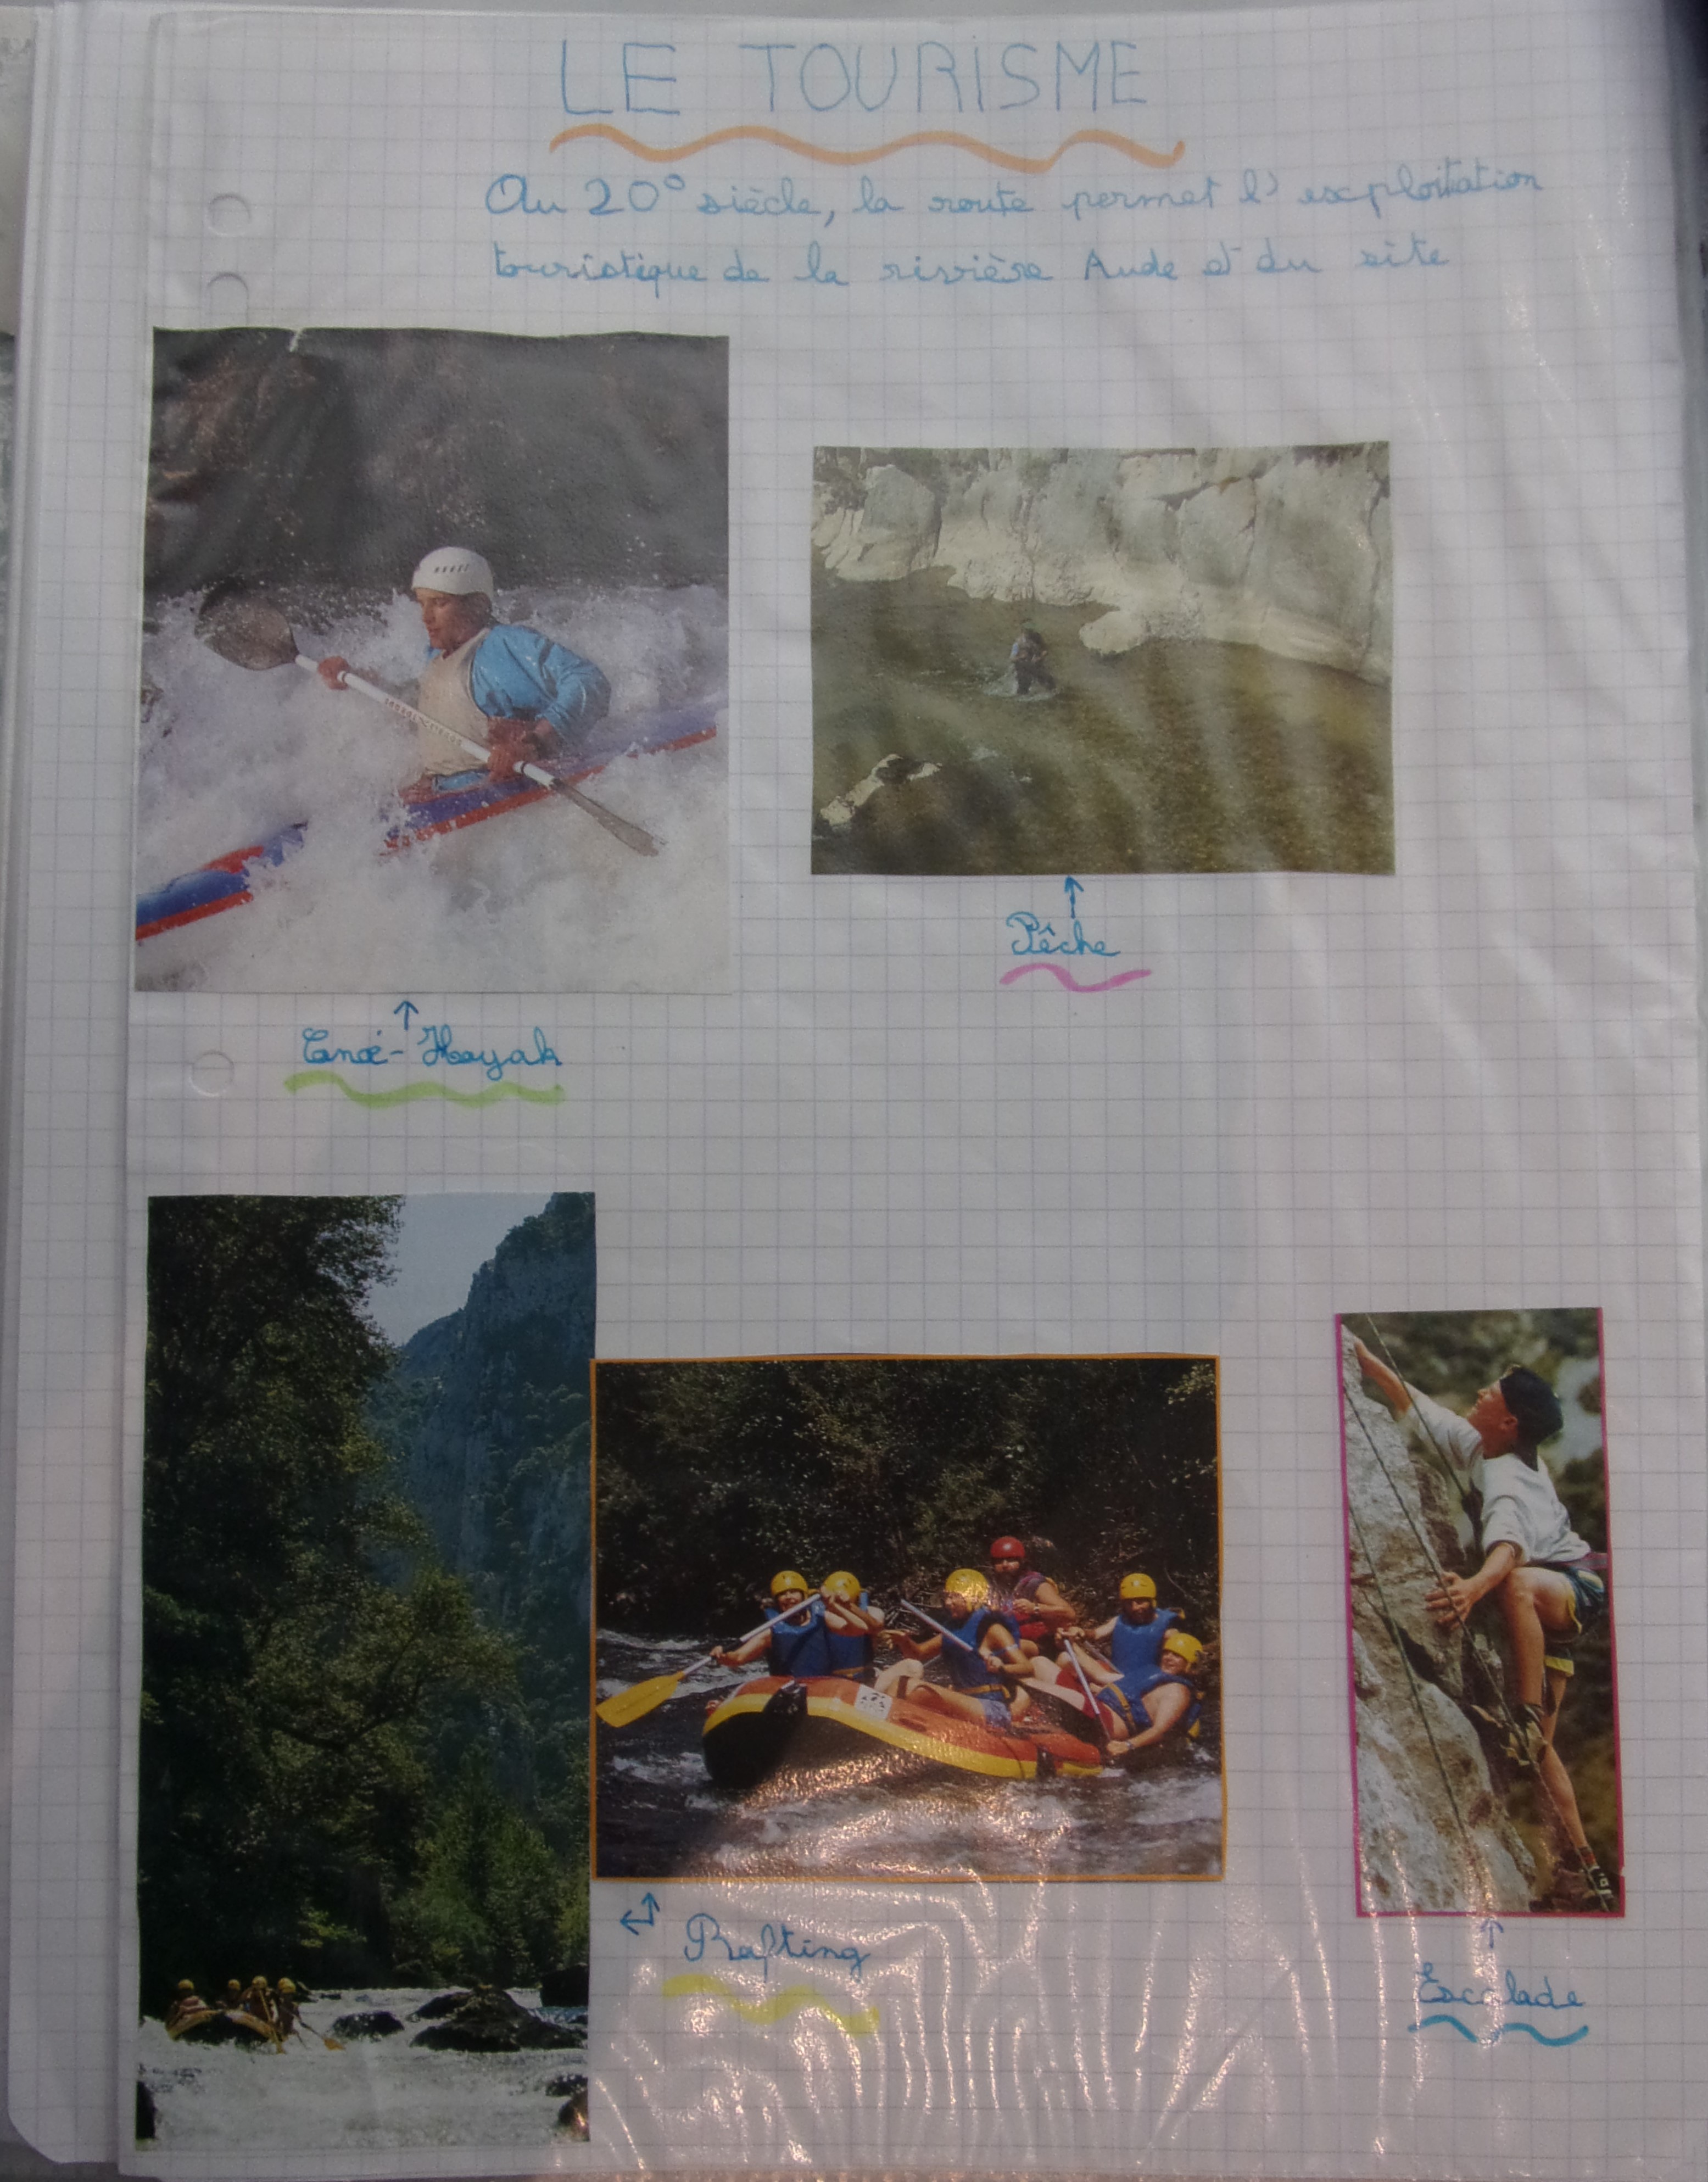 LE TOURISME
Au 20° siècle, la route permet l'exploitation
touristique de la rivière Aude et du site
Pêche
Canoë-Kayak
Rafting
Escalade